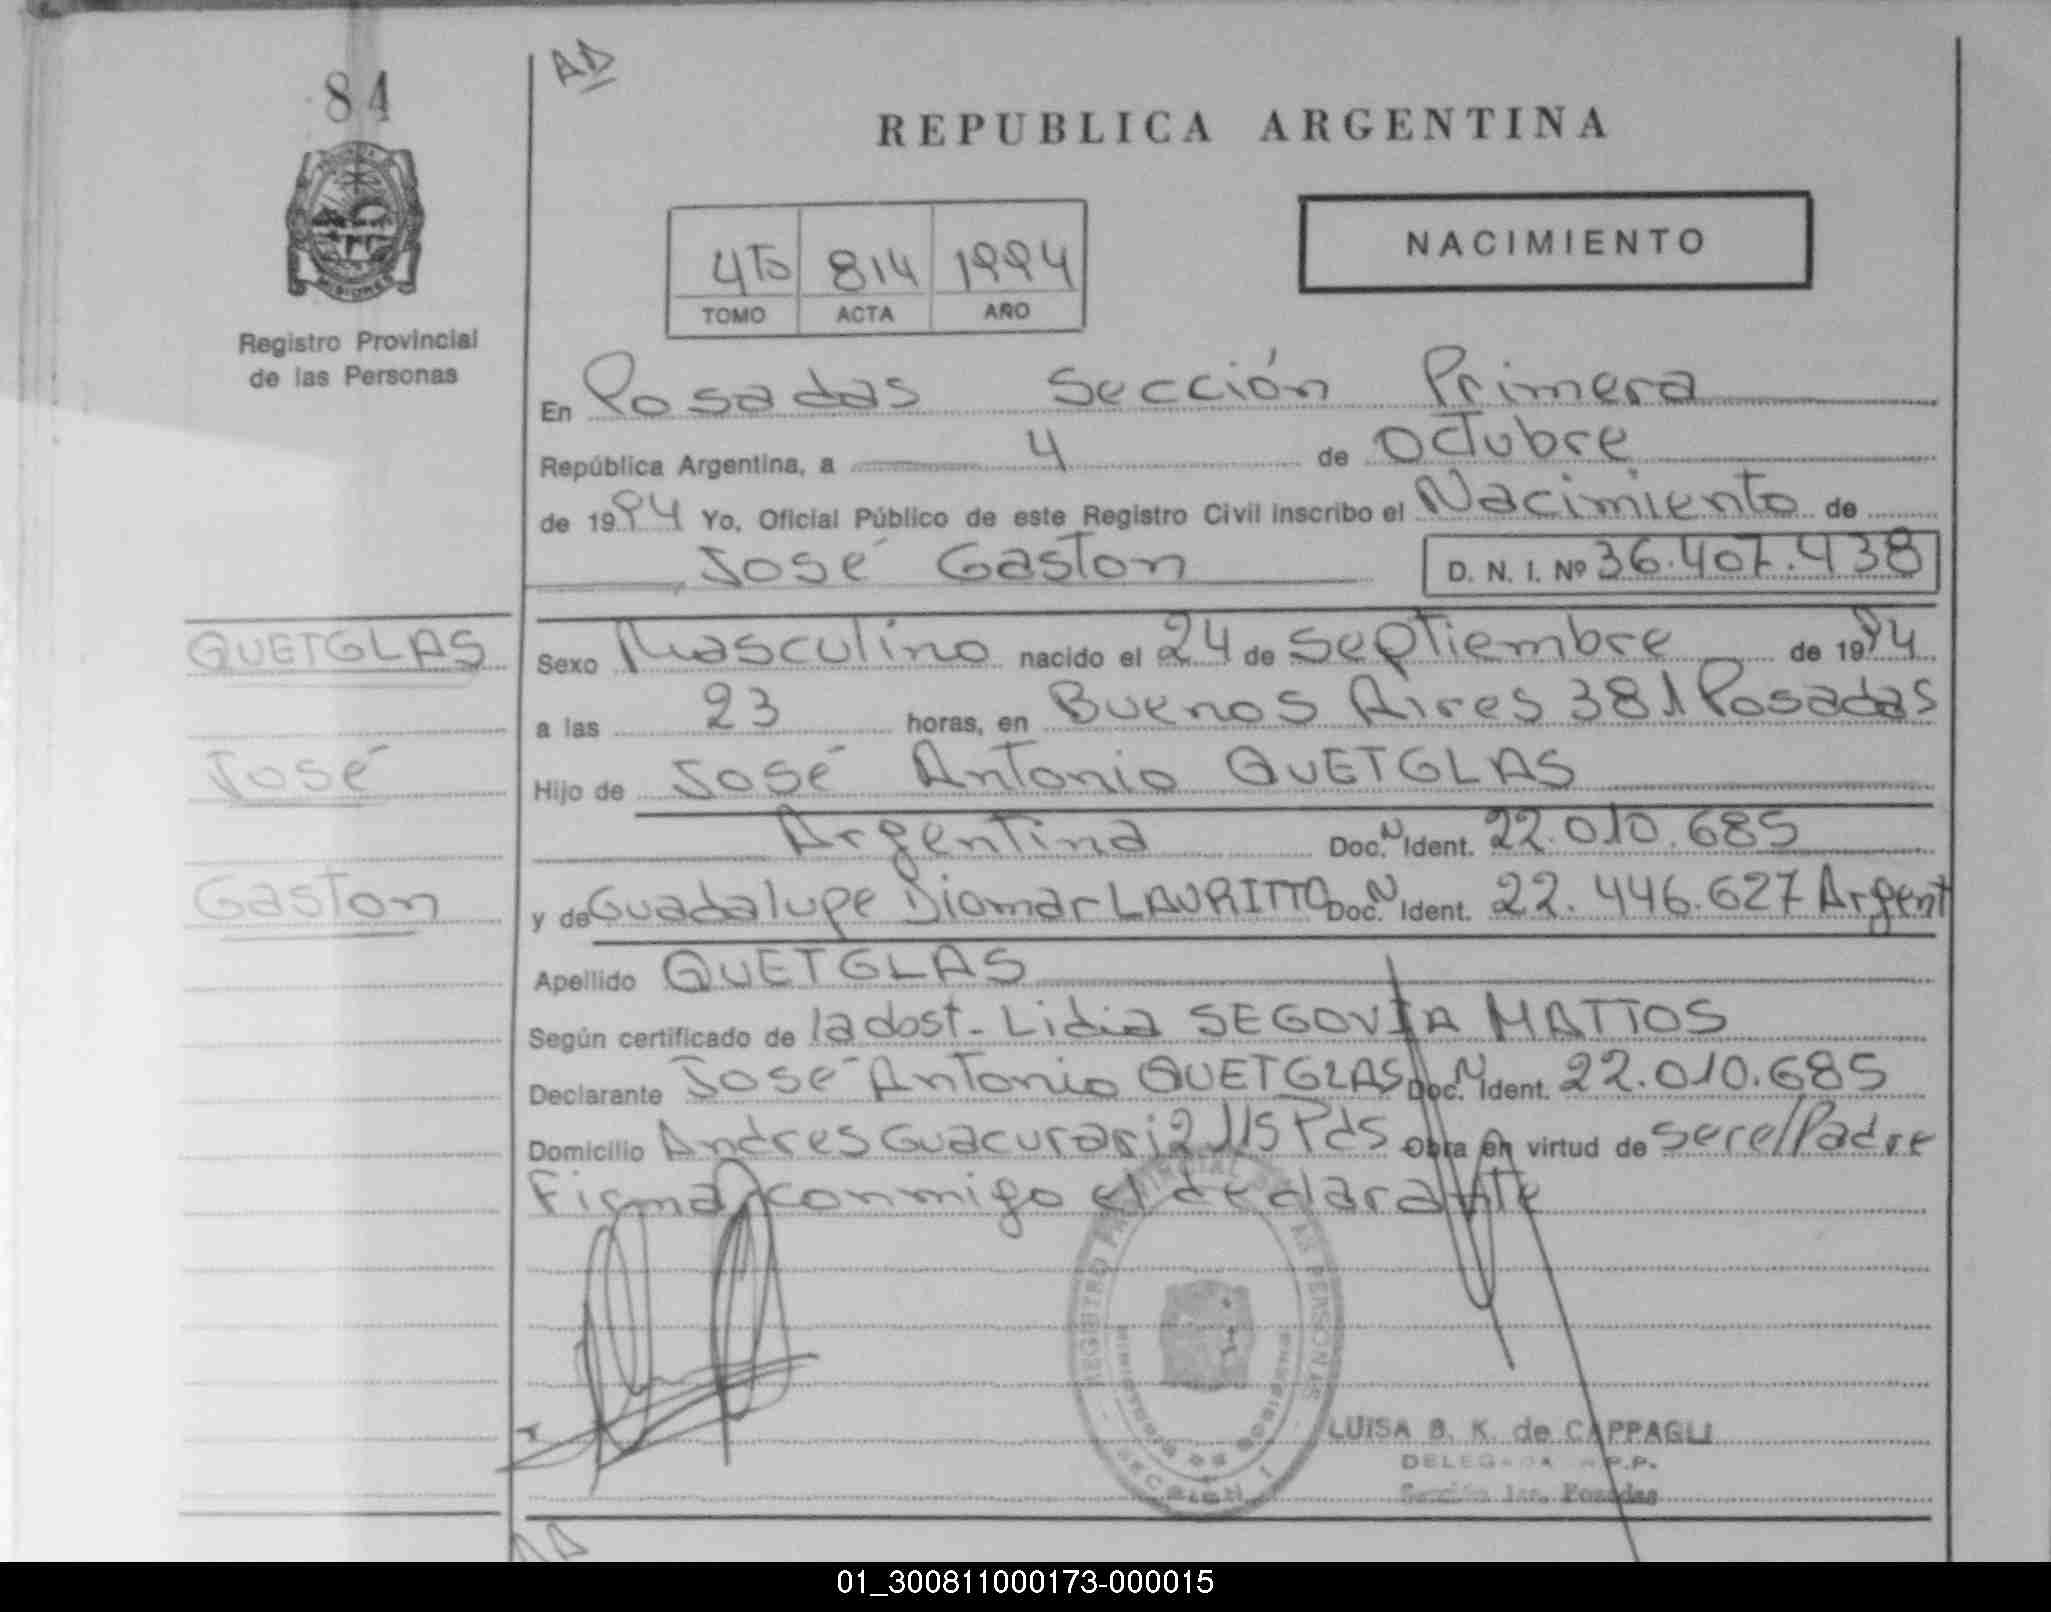 84
AD
REPUBLICA ARGENTINA
MISIONES
Registro Provincial
de las Personas
4To 814 1994
TOMO ACTA AÑO
NACIMIENTO
En Posadas Sección Primera
República Argentina, a 4 de Octubre
de 1994 Yo, Oficial Público de este Registro Civil inscribo el Nacimiento de
José Gaston D. N. I. Nº 36.407.438
QUETGLAS
Sexo Masculino nacido el 24 de Septiembre de 1994
a las 23 horas, en Buenos Aires 381 Posadas
José
Hijo de José Antonio QUETGLAS
Argentina Doc. N Ident. 22.010.685
Gaston
y de Guadalupe Diomar LAURITTO Doc. N Ident. 22.446.627 Argent
Apellido QUETGLAS
Según certificado de la dost. Lidia SEGOVIA MATTOS
Declarante José Antonio QUETGLAS Doc. N Ident. 22.010.685
Domicilio Andres Guacurari 2115 Pds Obra en virtud de ser el Padre
Firma conmigo el declarante
REGISTRO PROVINCIAL DE LAS PERSONAS
SECCION 1
LUISA B. K. de CAPPAGLI
DELEGADA R.P.P.
Sección 1ra. Posadas
01_300811000173-000015